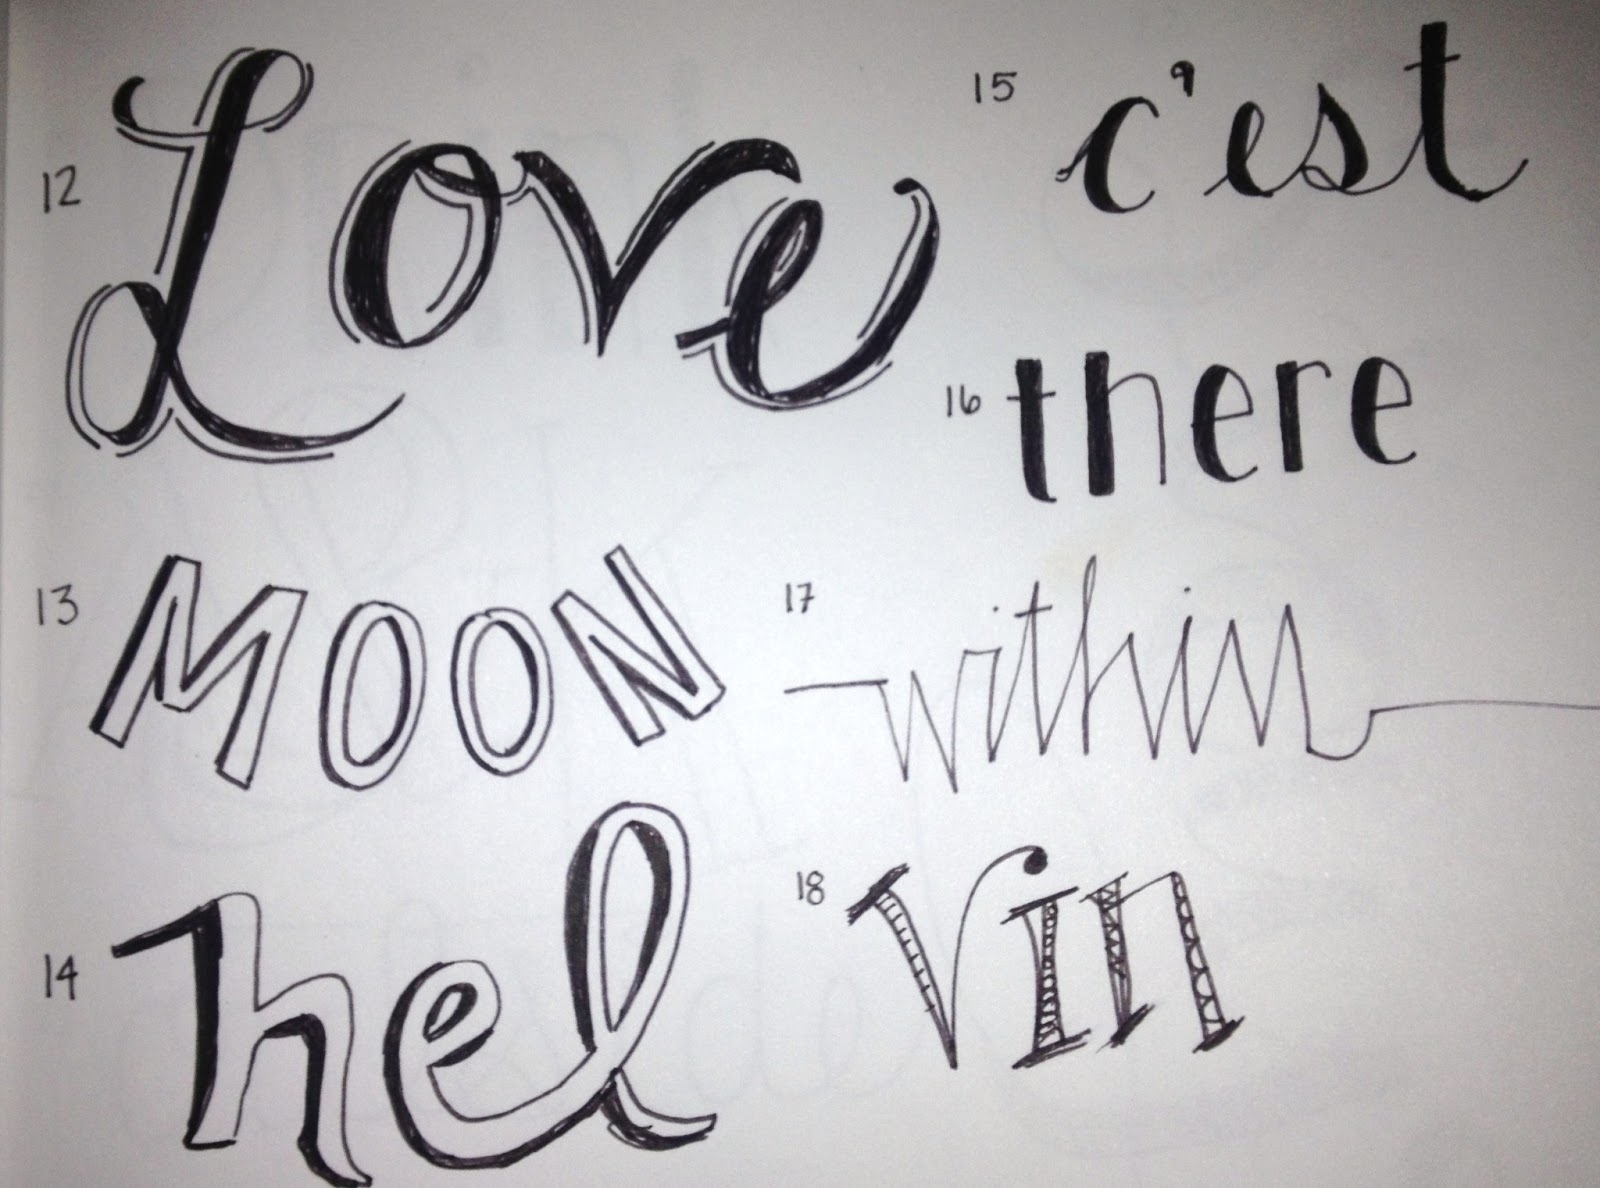 12 Love
13 MOON
14 hel
15 c'est
16 there
17 within
18 Vin